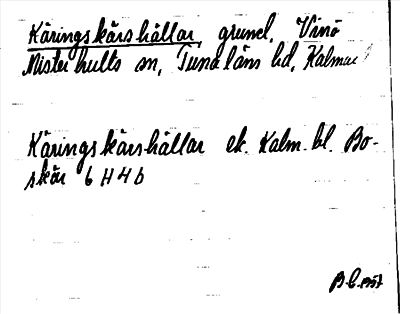 Käringskärshällar grund, Vinö
Misterhults sn, Tunaläns hd, Kalmar
Käringskärshällar ek. Kalm. bl. Bo-
skär 6 H 4 b